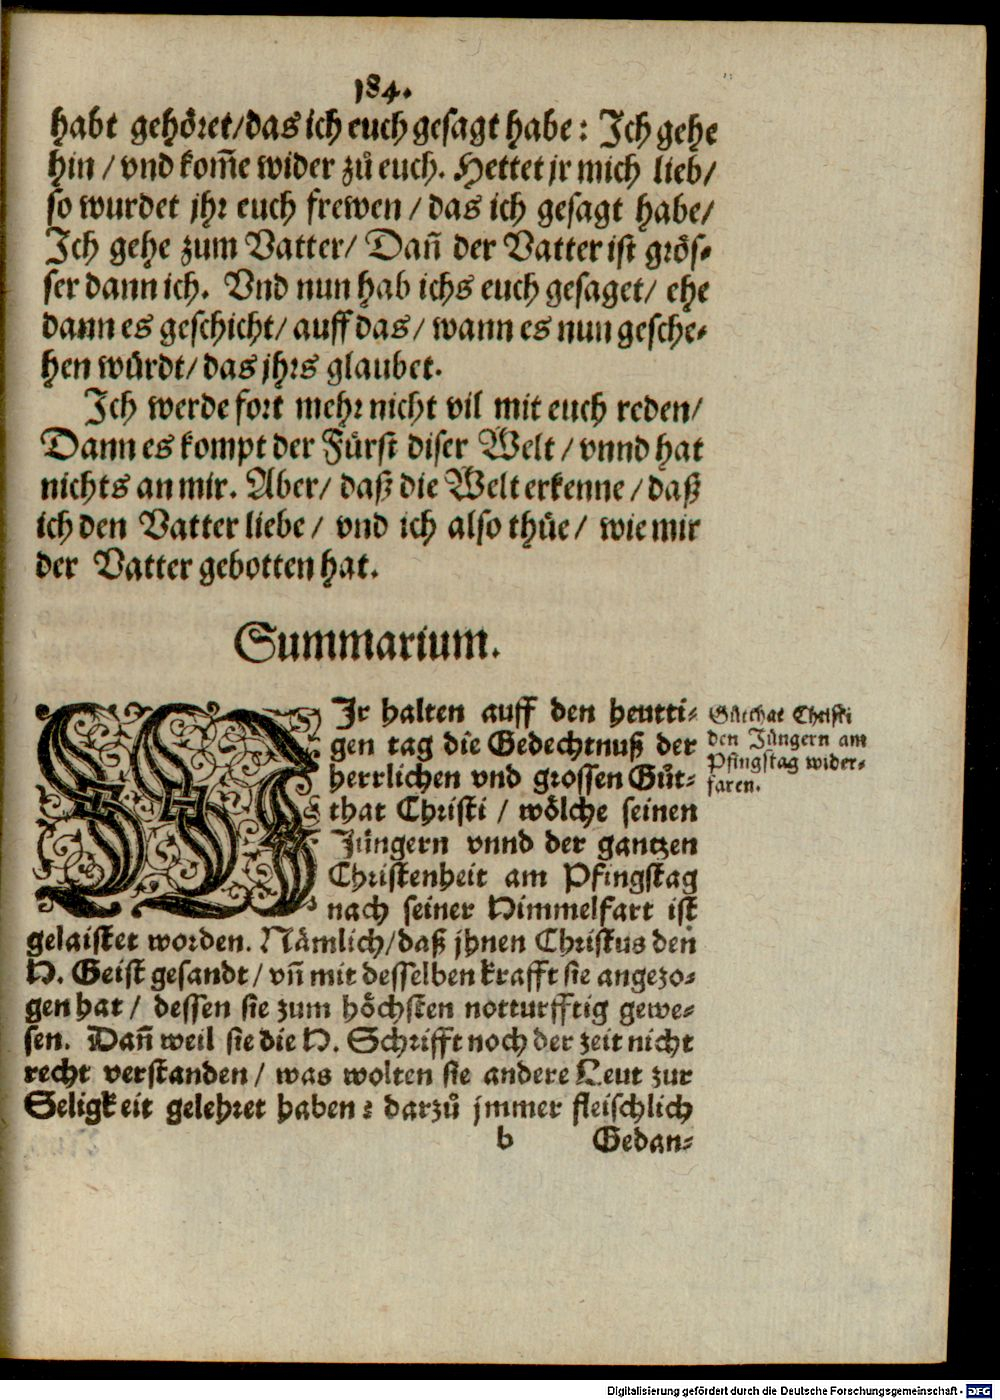 184.
habt gehöret/das ich euch gesagt habe: Ich gehe
hin / vnd kom̃e wider zů euch. Hettet jr mich lieb/
so wurdet jhr euch frewen / das ich gesagt habe/
Ich gehe zum Vatter/ Dañ der Vatter ist grös-
ser dann ich. Vnd nun hab ichs euch gesaget/ ehe
dann es geschicht/ auff das/ wann es nun gesche-
hen würdt/ das jhrs glaubet.
Ich werde fort mehr nicht vil mit euch reden/
Dann es kompt der Fürst diser Welt / vnnd hat
nichts an mir. Aber/ daß die Welt erkenne / daß
ich den Vatter liebe / vnd ich also thüe / wie mir
der Vatter gebotten hat.
Summarium.
WIr halten auff den heutti-
gen tag die Gedechtnuß der
herrlichen vnd grossen Gůt-
that Christi / wölche seinen
Jüngern vnnd der gantzen
Christenheit am Pfingstag
nach seiner Himmelfart ist
gelaistet worden. Nämlich/daß jhnen Christus den
H. Geist gesandt / vñ mit desselben krafft sie angezo-
gen hat / dessen sie zum höchsten notturfftig gewe-
sen. Dañ weil sie die H. Schrifft noch der zeit nicht
recht verstanden / was wolten sie andere Leut zur
Seligkeit gelehret haben? darzů jmmer fleischlich
b Gedan-
Gůtthat Christi
den Jüngern am
Pfingstag wider-
faren.
Digitalisierung gefördert durch die Deutsche Forschungsgemeinschaft - DFG